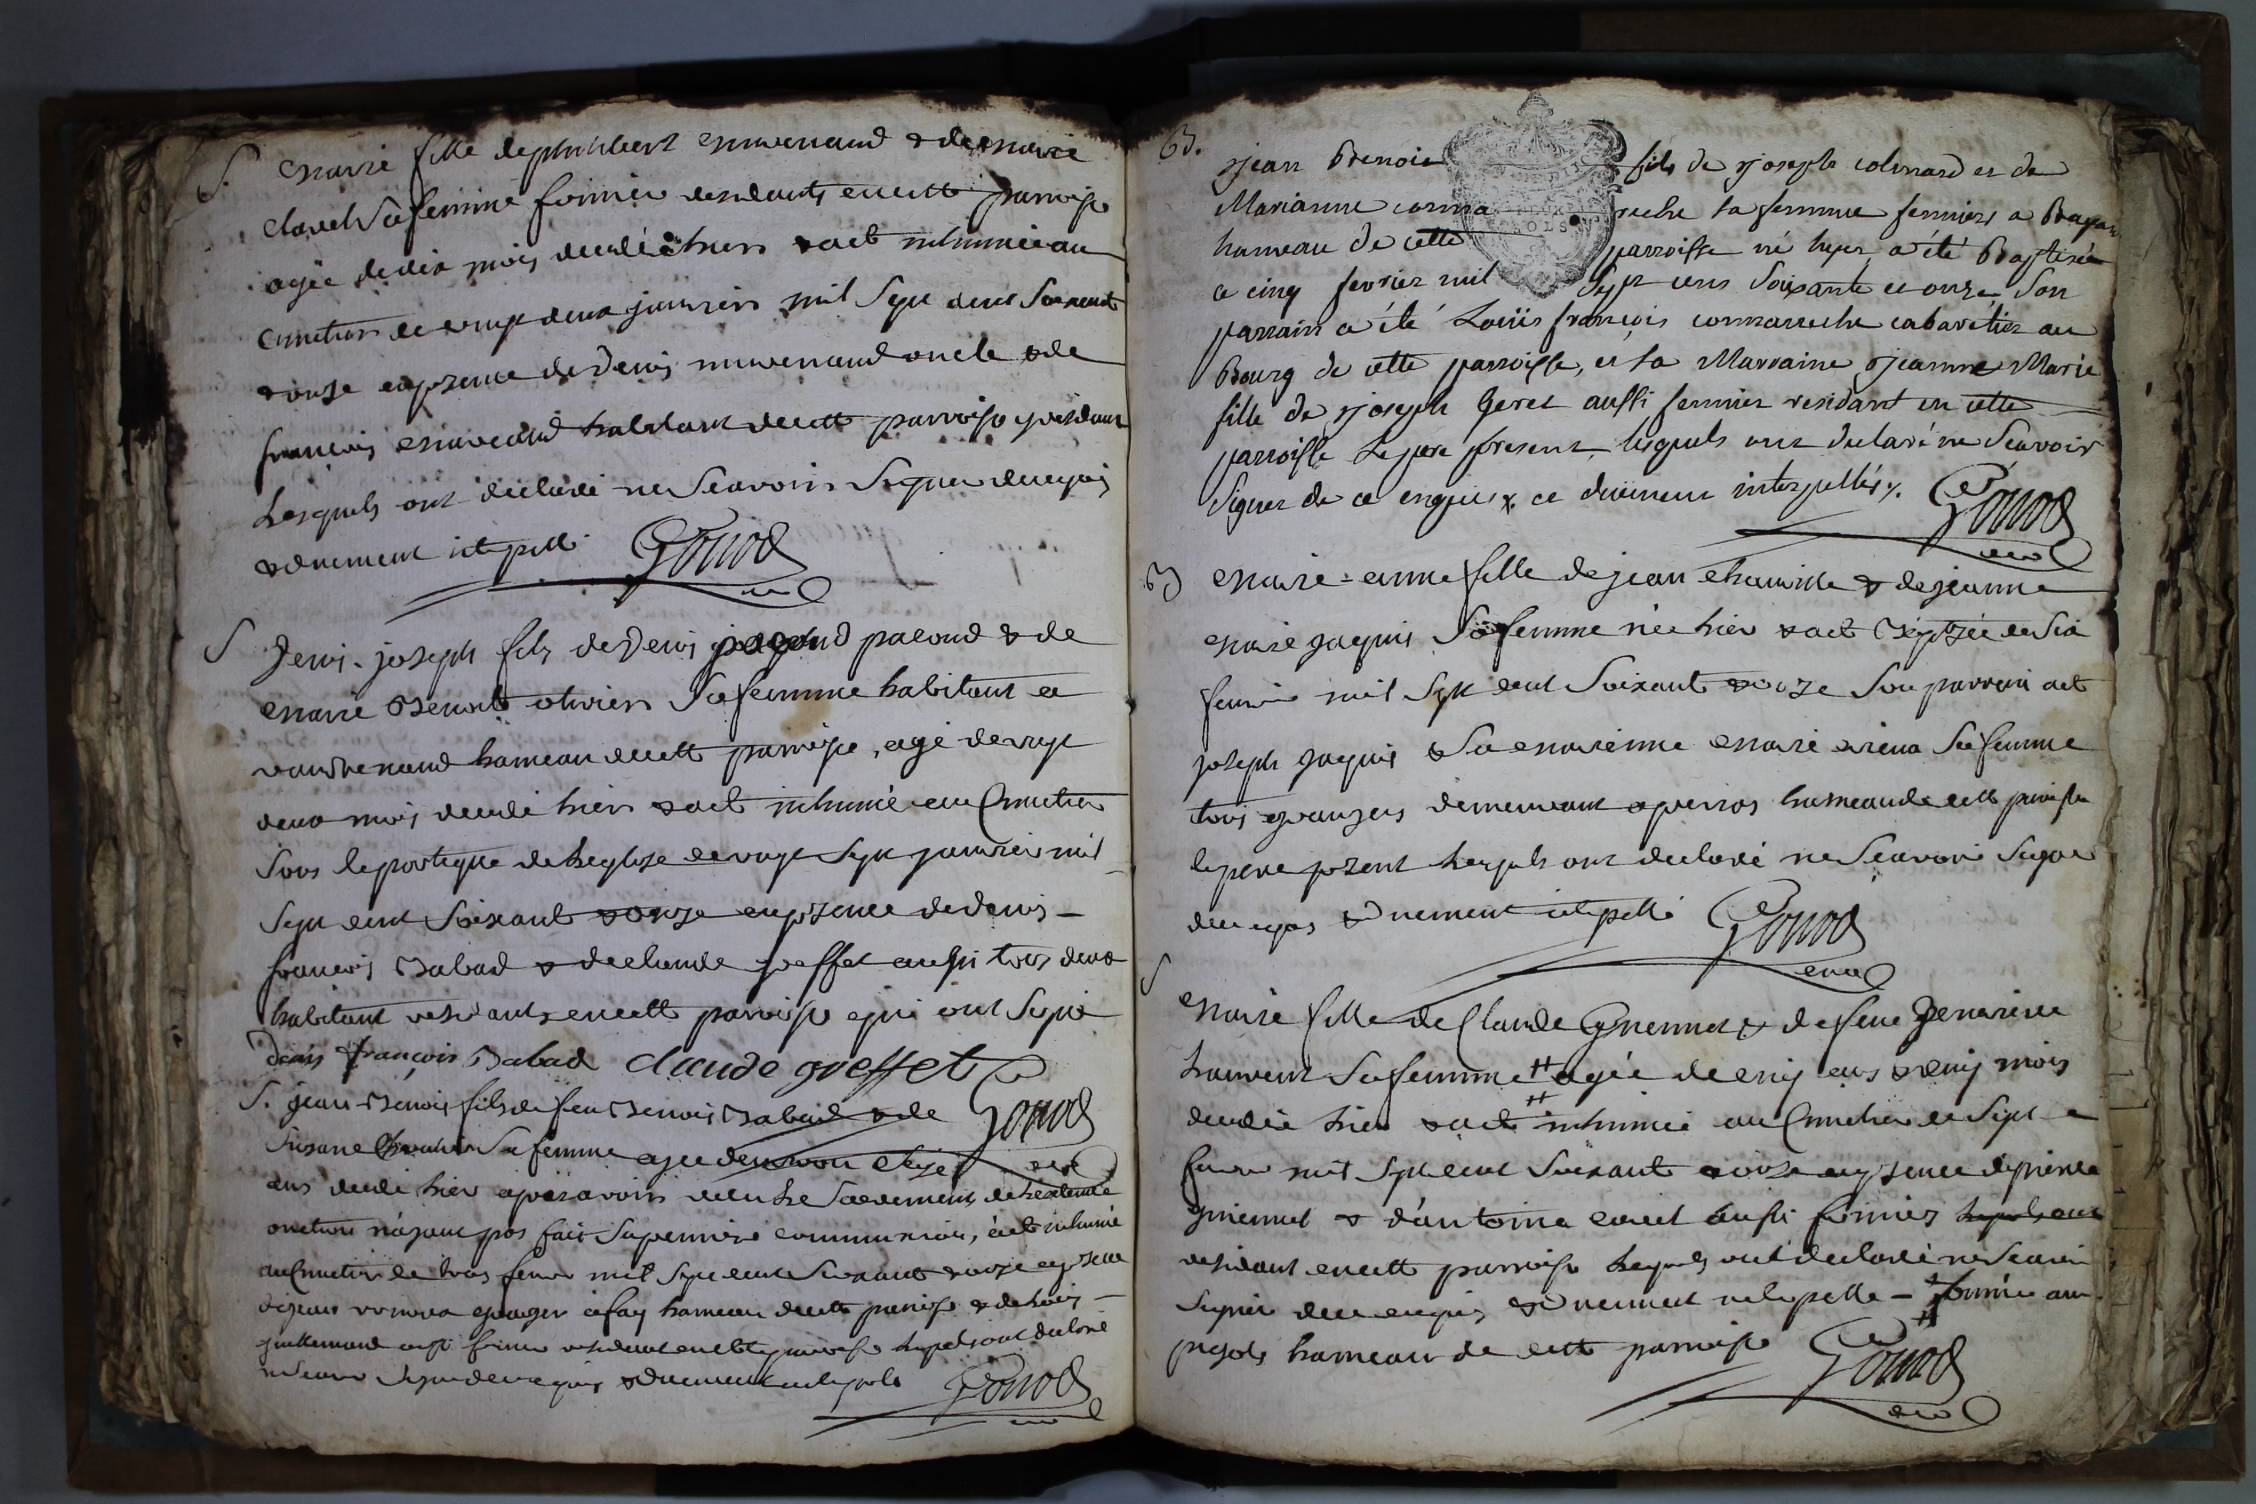 S.
Marie fille de philibert & de marie
Clavel Sa femme fermier residants en cette parroisse
agée de dix mois decedé hier & a eté inhumée au
Cimetier le vingt deux janvier mil Sept cent Soixante
& onze en presence de Denis oncle & de
françois habitant de cette parroisse
Lesquels ont declaré ne Scavoir Signer de ce enquis
& duement interpellé Gonod
curé
S
Denis-joseph fils de Denis pacoud & de
marie Benoite olivier Sa femme habitant a
hameau de cette parroisse, agé de vingt
deux mois decedé hier & a eté inhumé au Cimetier
Sous le portique de Leglise le vingt Sept janvier mil
Sept cent Soixante & onze en presence de denis-
francois Babad & de claude greffet aussi tous deux
habitant residants en cette parroisse qui ont Signé
Denis françois Babad Claude greffet
Gonod
curé
S. jean-Benoit fils de feu Benoit Babad & de
Susane Sa femme agé d'environ
ans decedé hier apres avoir recu Le Sacrement de Lextreme
onction n'ayant pas fait Sa premiere communion, a eté inhumé
au Cimetier le trois fevrier mil Sept cent Soixante & onze en presence
de jean granger a fay hameau de cette parroisse & de Louis
guillemaud aussi fermier residant en cette parroisse Lesquels ont declaré
ne Scavoir Signer de ce enquis & duement interpellé Gonod
curé
B.
jean Benoit fils de joseph colinard et de
Marianne conna ruche sa femme fermiers a
hameau de cette parroisse né hyer, a été Baptisé
ce cinq fevrier mil Sept cens Soixante et onze, Son
parrain a été Loüis françois connarruche cabaretier au
Bourg de cette parroisse, et sa Marraine jeanne Marie
fille de joseph geret aussi fermier residant en cette
parroisse Le pere present, lesquels ont declaré ne Scavoir
Signer de ce enquis & ce düement interpellés. Gonod
curé
B
Marie-anne fille de jean & de jeanne
marie jaquis Sa femme née hier & a eté Baptisée le Six
fevrier mil Sept cent Soixante & onze Son parrain a eté
joseph jaquis & Sa mareinne marie Sa femme
tous grangers demeurant a hameau de cette parroisse
le pere present Lesquels ont declaré ne Scavoir Signer
de ce enquis & duement interpellé Gonod
curé
S
Marie fille de Claude & de feue Genevieve
Sa femme # agée de cinq ans & cinq mois
decedée hier & a eté inhumée au Cimetier le Sept
fevrier mil Sept cent Soixante & onze en presence de pierre
& d'antoine aussi fermiers
residant en cette parroisse Lesquels ont declaré ne Scavoir
Signer de ce enquis & duement interpellé - # fermier au
hameau de cette parroisse Gonod
curé